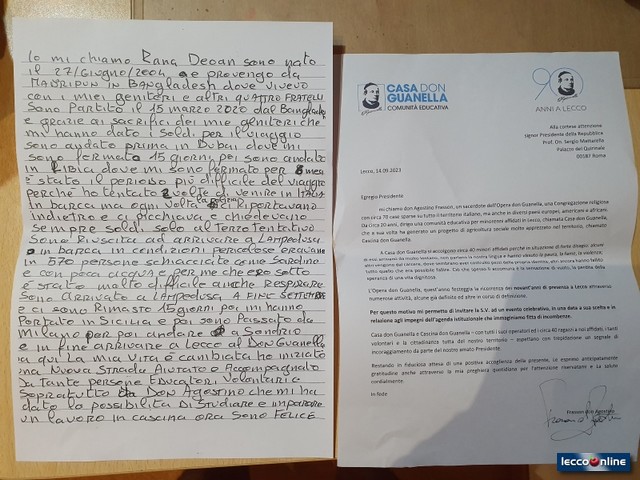 Io mi chiamo Rana Deoan sono nato
il 27/Giugno/2004 e provengo da
MADRIPUN in BANGLADESH dove vivevo
con i miei genitori e altri quattro fratelli
Sono Partito il 15 marzo 2020 dal Banglade
e grazie ai sacrifici dei mie genitori che
mi hanno dato i soldi per il viaggio
sono andato prima in Dubai dove mi
sono fermato 15 giorni poi sono andato
in Libia dove mi sono fermato per 8 mea
è stato il periodo più difficile del viaggio
perche ho tentato 2 volte di venire in Italia
in barca ma ogni volta la polizia ci riportavano
indietro e ci picchiava e chiedevano
sempre soldi solo al Terzo tentativo
Sono Riuscita ad arrivare a LAMPedusa
in barca in condizioni pericolose eravamo
in 570 persone schiacciate come sardine
e con poca acqua e per me che ero sotto
è stato molto difficile anche respirare
Sono Arrivato a LAMPEDUSA A FINE SETTEMBRE
e ci sono Rimasto 15 giorni poi mi hanno
Portato in Sicilia e poi sono Passato da
Milano per poi andare a Sondrio
e in fine arrivare a Lecco al Don Guanella
qui la mia vita è cambiata ho iniziato
una Nuova Strada Aiutato e Accompagnato
da tante persone Educatori Volontari e
Sopratutto Don Agostino che mi ha
dato la possibilita di studiare e imparare
un lavoro in cascina ora sono Felice
CASA DON
GUANELLA
COMUNITÀ EDUCATIVA
90
ANNI A LECCO
Alla cortese attenzione
signor Presidente della Repubblica
Prof. On. Sergio Mattarella
Palazzo del Quirinale
00187 Roma
Lecco, 14.09.2023
Egregio Presidente
mi chiamo don Agostino Frasson, un sacerdote dell'Opera don Guanella, una Congregazione religiosa
con circa 70 case sparse su tutto il territorio italiano, ma anche in diversi paesi europei, americani e africani.
Da circa 20 anni, dirigo una comunità educativa per minorenni affidati in Lecco, chiamata Casa don Guanella,
che a sua volta ha generato un progetto di agricoltura sociale molto apprezzato nel territorio, chiamato
Cascina don Guanella.
A Casa don Guanella si accolgono circa 40 minori affidati
L'Opera don Guanella, quest'anno festeggia la ricorrenza dei novant'anni di presenza a Lecco attraverso
numerose attività, alcune già definite ed altre in corso di definizione.
Per questo motivo mi permetto di invitare la S.V. ad un evento celebrativo, in una data a sua scelta e in
relazione agli impegni dell'agenda istituzionale che immagino fitta di incombenze.
Casa don Guanella e Cascina don Guanella - con tutti i suoi operatori ed i circa 40 ragazzi a noi affidati, i tanti
volontari e la cittadinanza tutta del nostro territorio - aspettano con trepidazione un segnale di
incoraggiamento da parte del nostro amato Presidente
Restando in fiduciosa attesa di una positiva accoglienza della presente, Le esprimo anticipatamente
gratitudine anche attraverso la mia preghiera quotidiana per l'attenzione riservataci e La saluto
cordialmente.
In fede
Frasson don Agostino
leccoonline